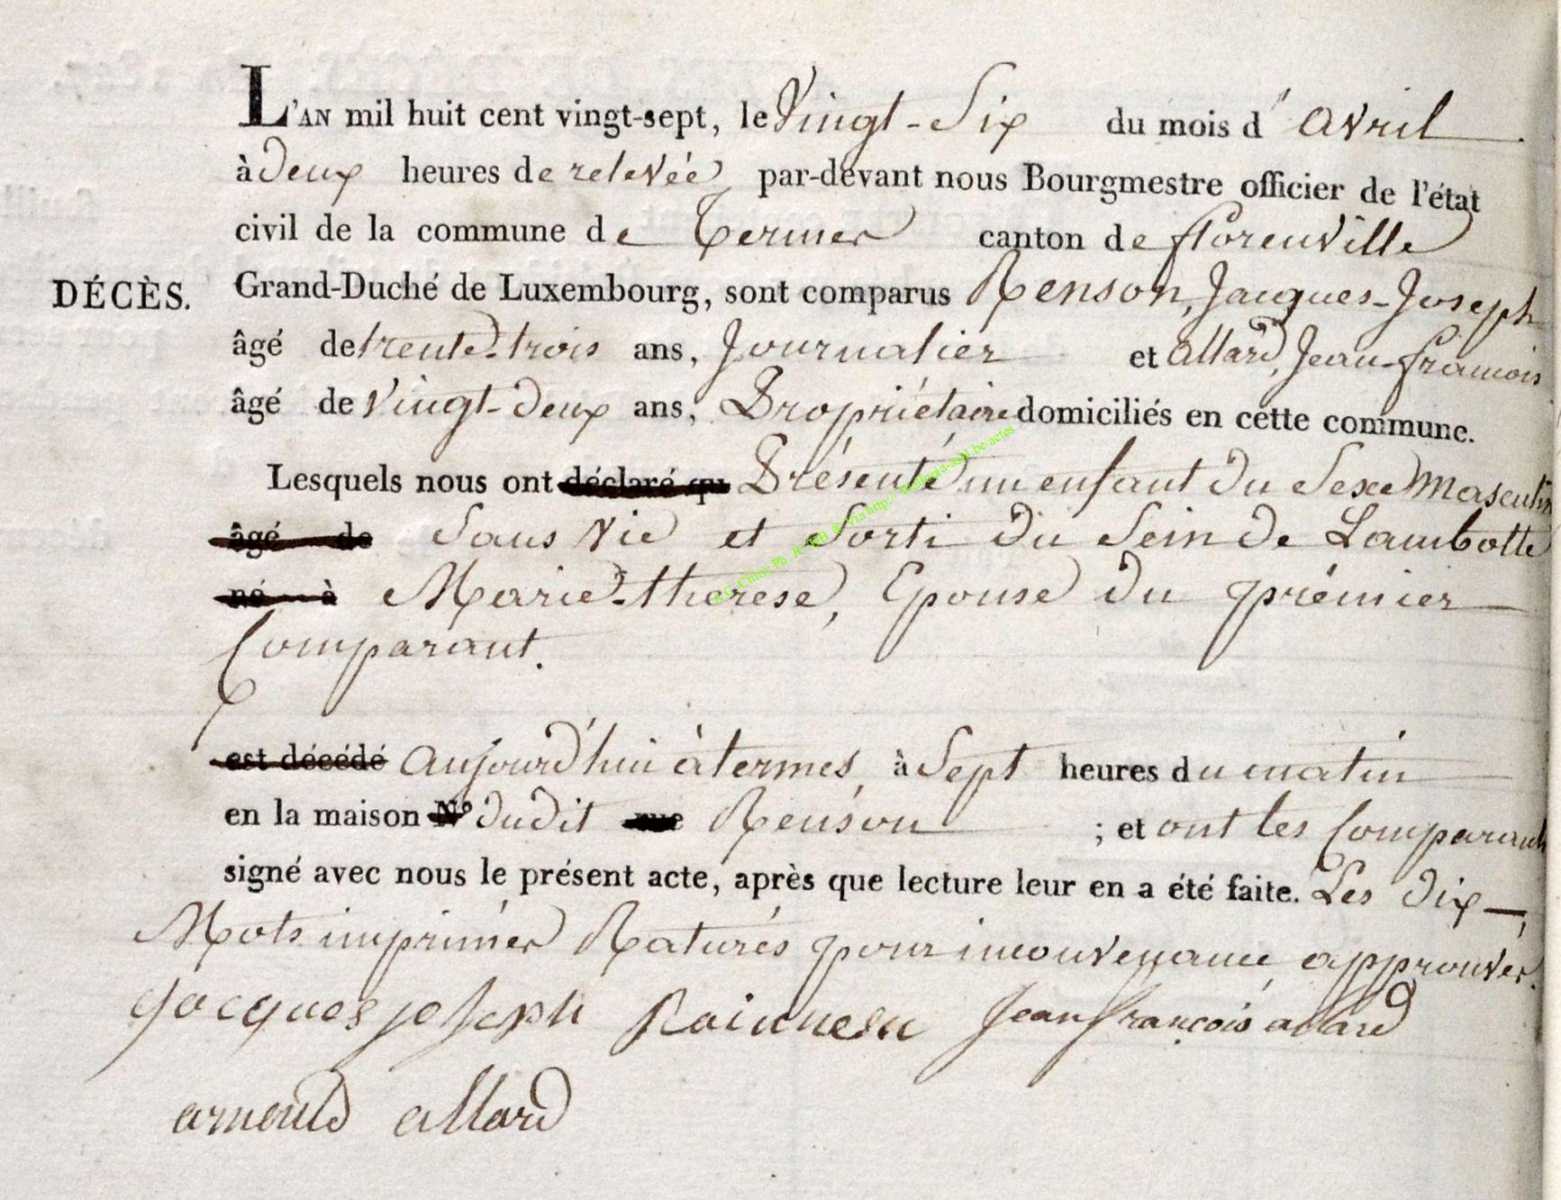 L'AN mil huit cent vingt-sept, le Vingt-Six du mois d'avril
à deux heures de relevée, par-devant nous Bourgmestre officier de l'état
civil de la commune de Termes canton de florenville
DÉCÈS. Grand-Duché de Luxembourg, sont comparus Renson, Jacques-Joseph
âgé de trente-trois ans, Journalier et allard, Jean-francois
âgé de Vingt-deux ans, Propriétaire domiciliés en cette commune.
Lesquels nous ont déclaré qu Présenté un enfant du Sexe Masculin
âgé de Sans Vie et Sorti du Sein de Lambotte
né à Marie-therese, Epouse du prémier
Comparant.
est décédé aujourd'hui à termes, à Sept heures du matin
en la maison N° dudit rue Renson ; et ont les Comparants
signé avec nous le présent acte, après que lecture leur en a été faite. Les dix
Mots imprimés Raturés pour inconvenance approuvés.
jacques joseph Jean françois alard
arnould allard